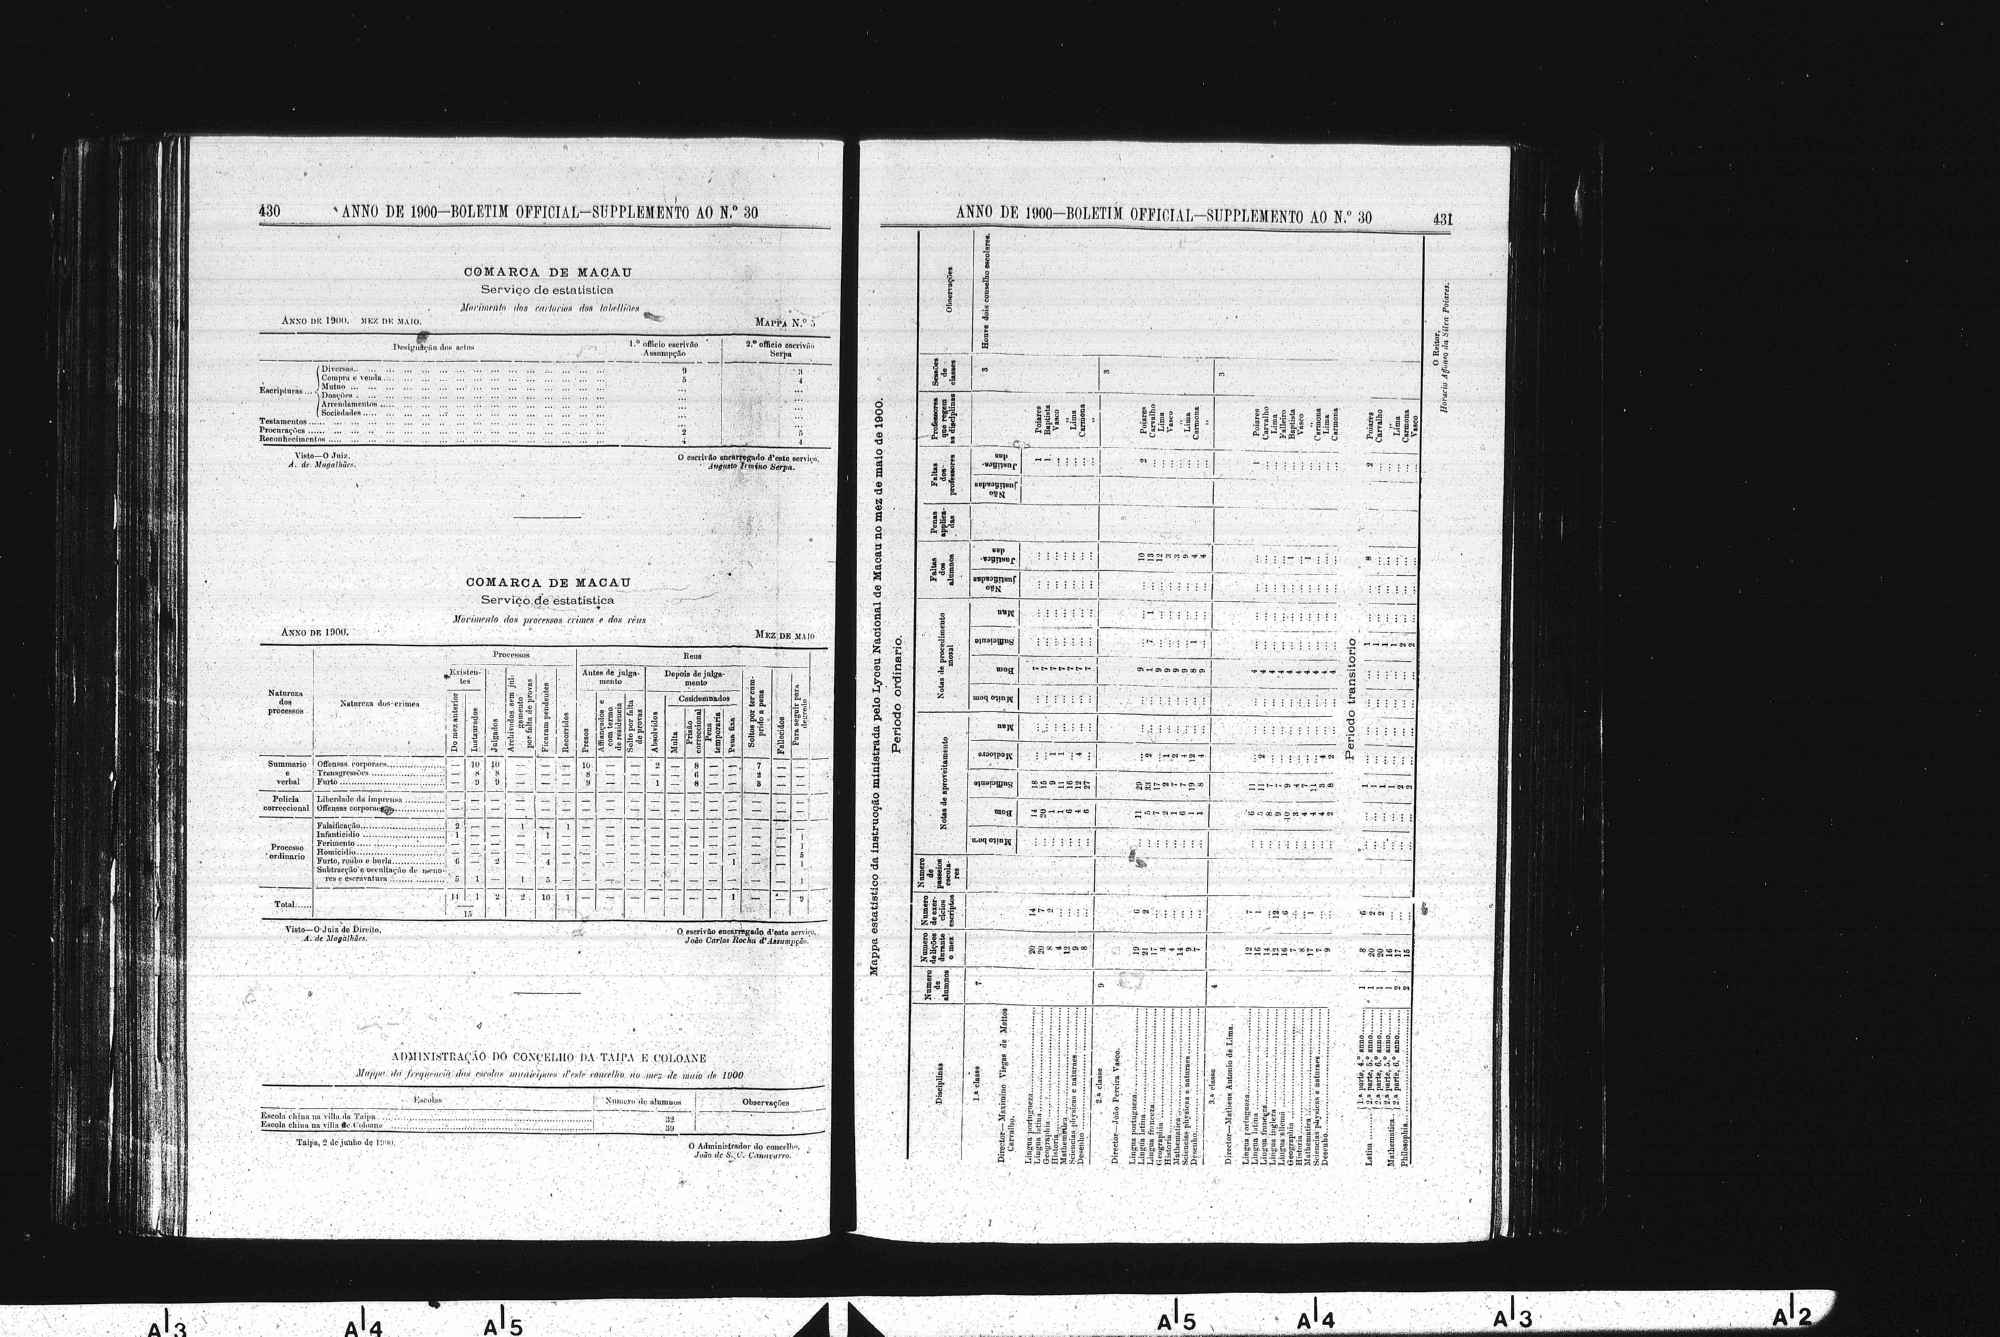 430 ANNO DE 1900—BOLETIM OFFICIAL—SUPPLEMENTO AO N.º 30
COMARCA DE MACAU
Serviço de estatistica
Movimento dos cartorios dos tabelliães
ANNO DE 1900. MEZ DE MAIO. MAPPA N.º 5
Designação dos actos 1.º officio escrivão Assumpção 2.º officio escrivão Serpa
Escripturas
Diversas 9 3
Compra e venda 5 4
Mutuo ... ...
Doações ... ...
Arrendamentos ... ...
Sociedades ... ...
Testamentos ... ...
Procurações 2 5
Reconhecimentos 4 4
Visto—O Juiz,
A. de Magalhães.
O escrivão encarregado d'este serviço,
Augusto Irmino Serpa.
COMARCA DE MACAU
Serviço de estatistica
Movimento dos processos crimes e dos réus
ANNO DE 1900. MEZ DE MAIO
Natureza dos processos
Natureza dos crimes
Processos
Existentes
Do mez anterior
Instaurados
Julgados
Archivados sem julgamento por falta de provas
Ficaram pendentes
Recorridos
Reus
Antes de julgamento
Presos
Affiançados e com termo de residencia
Solto por falta de provas
Depois de julgamento
Absolvidos
Condemnados
Multa
Prisão correccional
Pena temporaria
Pena fixa
Soltos por ter comprido a pena
Fallecidos
Para seguir para degredo
Summario e verbal
Offensas corporaes — 10 10 — — — 10 — — 2 — 8 — — 7 — —
Transgressões — 8 8 — — — 8 — — — — 6 — — 2 — —
Furto — 9 9 — — — 9 — — 1 — 8 — — 3 — —
Policia correccional
Liberdade da imprensa — — — — — — — — — — — — — — — — —
Offensas corporaes — — — — — — — — — — — — — — — — —
Processo ordinario
Falsificação 2 — — 1 — 1 — — — — — — — — — —
Infanticidio 1 — — — 1 — — — — — — — — — — — 1
Ferimento — — — — — — — — — — — — — — — — 1
Homicidio — — — — — — — — — — — — — — — — 5
Furto, roubo e burla 6 — 2 — 4 — — — — — — — — 1 — — 1
Subtracção e occultação de menores e escravatura 5 1 — 1 5 — — — — — — — — — — — 1
Total 14 1 2 2 10 1 — — — — — — — 1 — — 9
15
Visto—O Juiz de Direito,
A. de Magalhães.
O escrivão encarregado d'este serviço,
João Carlos Rocha d'Assumpção.
ADMINISTRAÇÃO DO CONCELHO DA TAIPA E COLOANE
Mappa da frequencia das escolas municipaes d'este concelho no mez de maio de 1900
Escolas Numero de alumnos Observações
Escola china na villa da Taipa 32
Escola china na villa de Coloane 39
Taipa, 2 de junho de 1900.
O Administrador do concelho,
João de S. C. Canavarro.
ANNO DE 1900—BOLETIM OFFICIAL—SUPPLEMENTO AO N.º 30 431
Mappa estatistico da instrucção ministrada pelo Lyceu Nacional de Macau no mez de maio de 1900.
Periodo ordinario.
Disciplinas
Numero de alumnos
Numero de lições durante o mez
Numero de exercicios escriptos
Numero de passeios escolares
Notas de aproveitamento
Muito bom
Bom
Sufficiente
Mediocre
Mau
Notas de procedimento moral
Muito bom
Bom
Sufficiente
Mau
Faltas dos alumnos
Não justificadas
Justificadas
Penas applicadas
Faltas dos professores
Não justificadas
Justificadas
Professores que regem as disciplinas
Sessões de classes
Observações
1.ª classe 7 3 Houve dois conselho escolares.
Director—Maximino Viegas de Mattos Carvalho.
Lingua portugueza 20 14 ... 14 18 ... ... ... 7 ... ... ... ... 1 Poiares
Lingua latina 20 7 ... 20 15 ... ... ... 7 ... ... ... ... 1 Baptista
Geographia 8 2 ... 1 9 1 ... ... 7 ... ... ... ... ... Vasco
Historia 4 ... ... 1 11 1 ... ... 7 ... ... ... ... ... „
Mathematica 12 ... ... 6 16 ... ... ... 7 ... ... ... ... ... Lima
Sciencias physicas e naturaes 9 ... ... 4 12 4 ... ... 7 ... ... ... ... ... Carmona
Desenho 8 ... ... 6 27 ... ... ... 7 ... ... ... ... ... „
2.ª classe 9 3
Director—João Pereira Vasco.
Lingua portugueza 19 6 ... 11 29 ... ... ... 9 ... ... ... 10 2 Poiares
Lingua latina 21 2 ... 5 33 2 ... ... 1 7 1 ... 13 ... Carvalho
Lingua franceza 17 ... ... 7 17 ... ... ... 9 ... ... ... 12 ... Lima
Geographia 3 ... ... 2 2 1 ... ... 9 ... ... ... 3 ... Vasco
Historia 4 ... ... 1 7 2 ... ... 9 ... ... ... 3 ... „
Mathematica 14 ... ... 6 7 4 ... ... 9 ... ... ... 9 ... Lima
Sciencias physicas e naturaes 9 ... ... 1 19 12 ... ... 8 1 ... ... 4 ... Carmona
Desenho 7 ... ... 1 8 4 ... ... 9 ... ... ... 4 ... „
3.ª classe 4 3
Director—Matheus Antonio de Lima.
Lingua portugueza 12 7 ... 6 11 ... ... ... 4 ... ... ... ... 1 Poiares
Lingua latina 16 1 ... 5 11 2 ... ... 4 ... ... ... ... ... Carvalho
Lingua franceza 14 ... ... 8 7 ... ... ... 4 ... ... ... ... ... Lima
Lingua ingleza 12 12 ... 9 7 ... ... ... 4 ... ... ... ... ... Falleiro
Lingua allemã 16 6 ... 10 9 ... ... ... 4 ... ... ... 1 ... Baptista
Geographia 7 ... ... 3 4 ... ... ... 4 ... ... ... ... ... Vasco
Historia 8 ... ... 4 7 ... ... ... 4 ... ... ... 1 ... „
Mathematica 17 1 ... 4 11 ... ... ... 4 ... ... ... ... ... Carmona
Sciencias physicas e naturaes 7 ... ... 4 3 4 ... ... 4 ... ... ... ... ... Lima
Desenho 9 ... ... 2 8 2 ... ... 4 ... ... ... ... ... Carmona
Periodo transitorio
Latim
1.ª parte, 4.º anno 1 8 6 ... ... 1 ... 1 ... 8 2 Poiares
2.ª parte, 5.º anno 1 20 2 ... ... 1 ... 1 ... ... ... Carvalho
2.ª parte, 6.º anno 1 20 2 ... ... 1 ... 1 ... ... ... „
Mathematica
2.ª parte, 5.º anno 1 16 ... ... ... 1 ... 1 ... ... ... Lima
2.ª parte, 6.º anno 2 17 ... ... ... 2 ... 2 ... ... ... Carmona
Philosophia 2 15 ... ... ... 2 ... 2 ... ... ... Vasco
O Reitor,
Horacio Affonso da Silva Poiares.
A|3 A|4 A|5 A|5 A|4 A|3 A|2